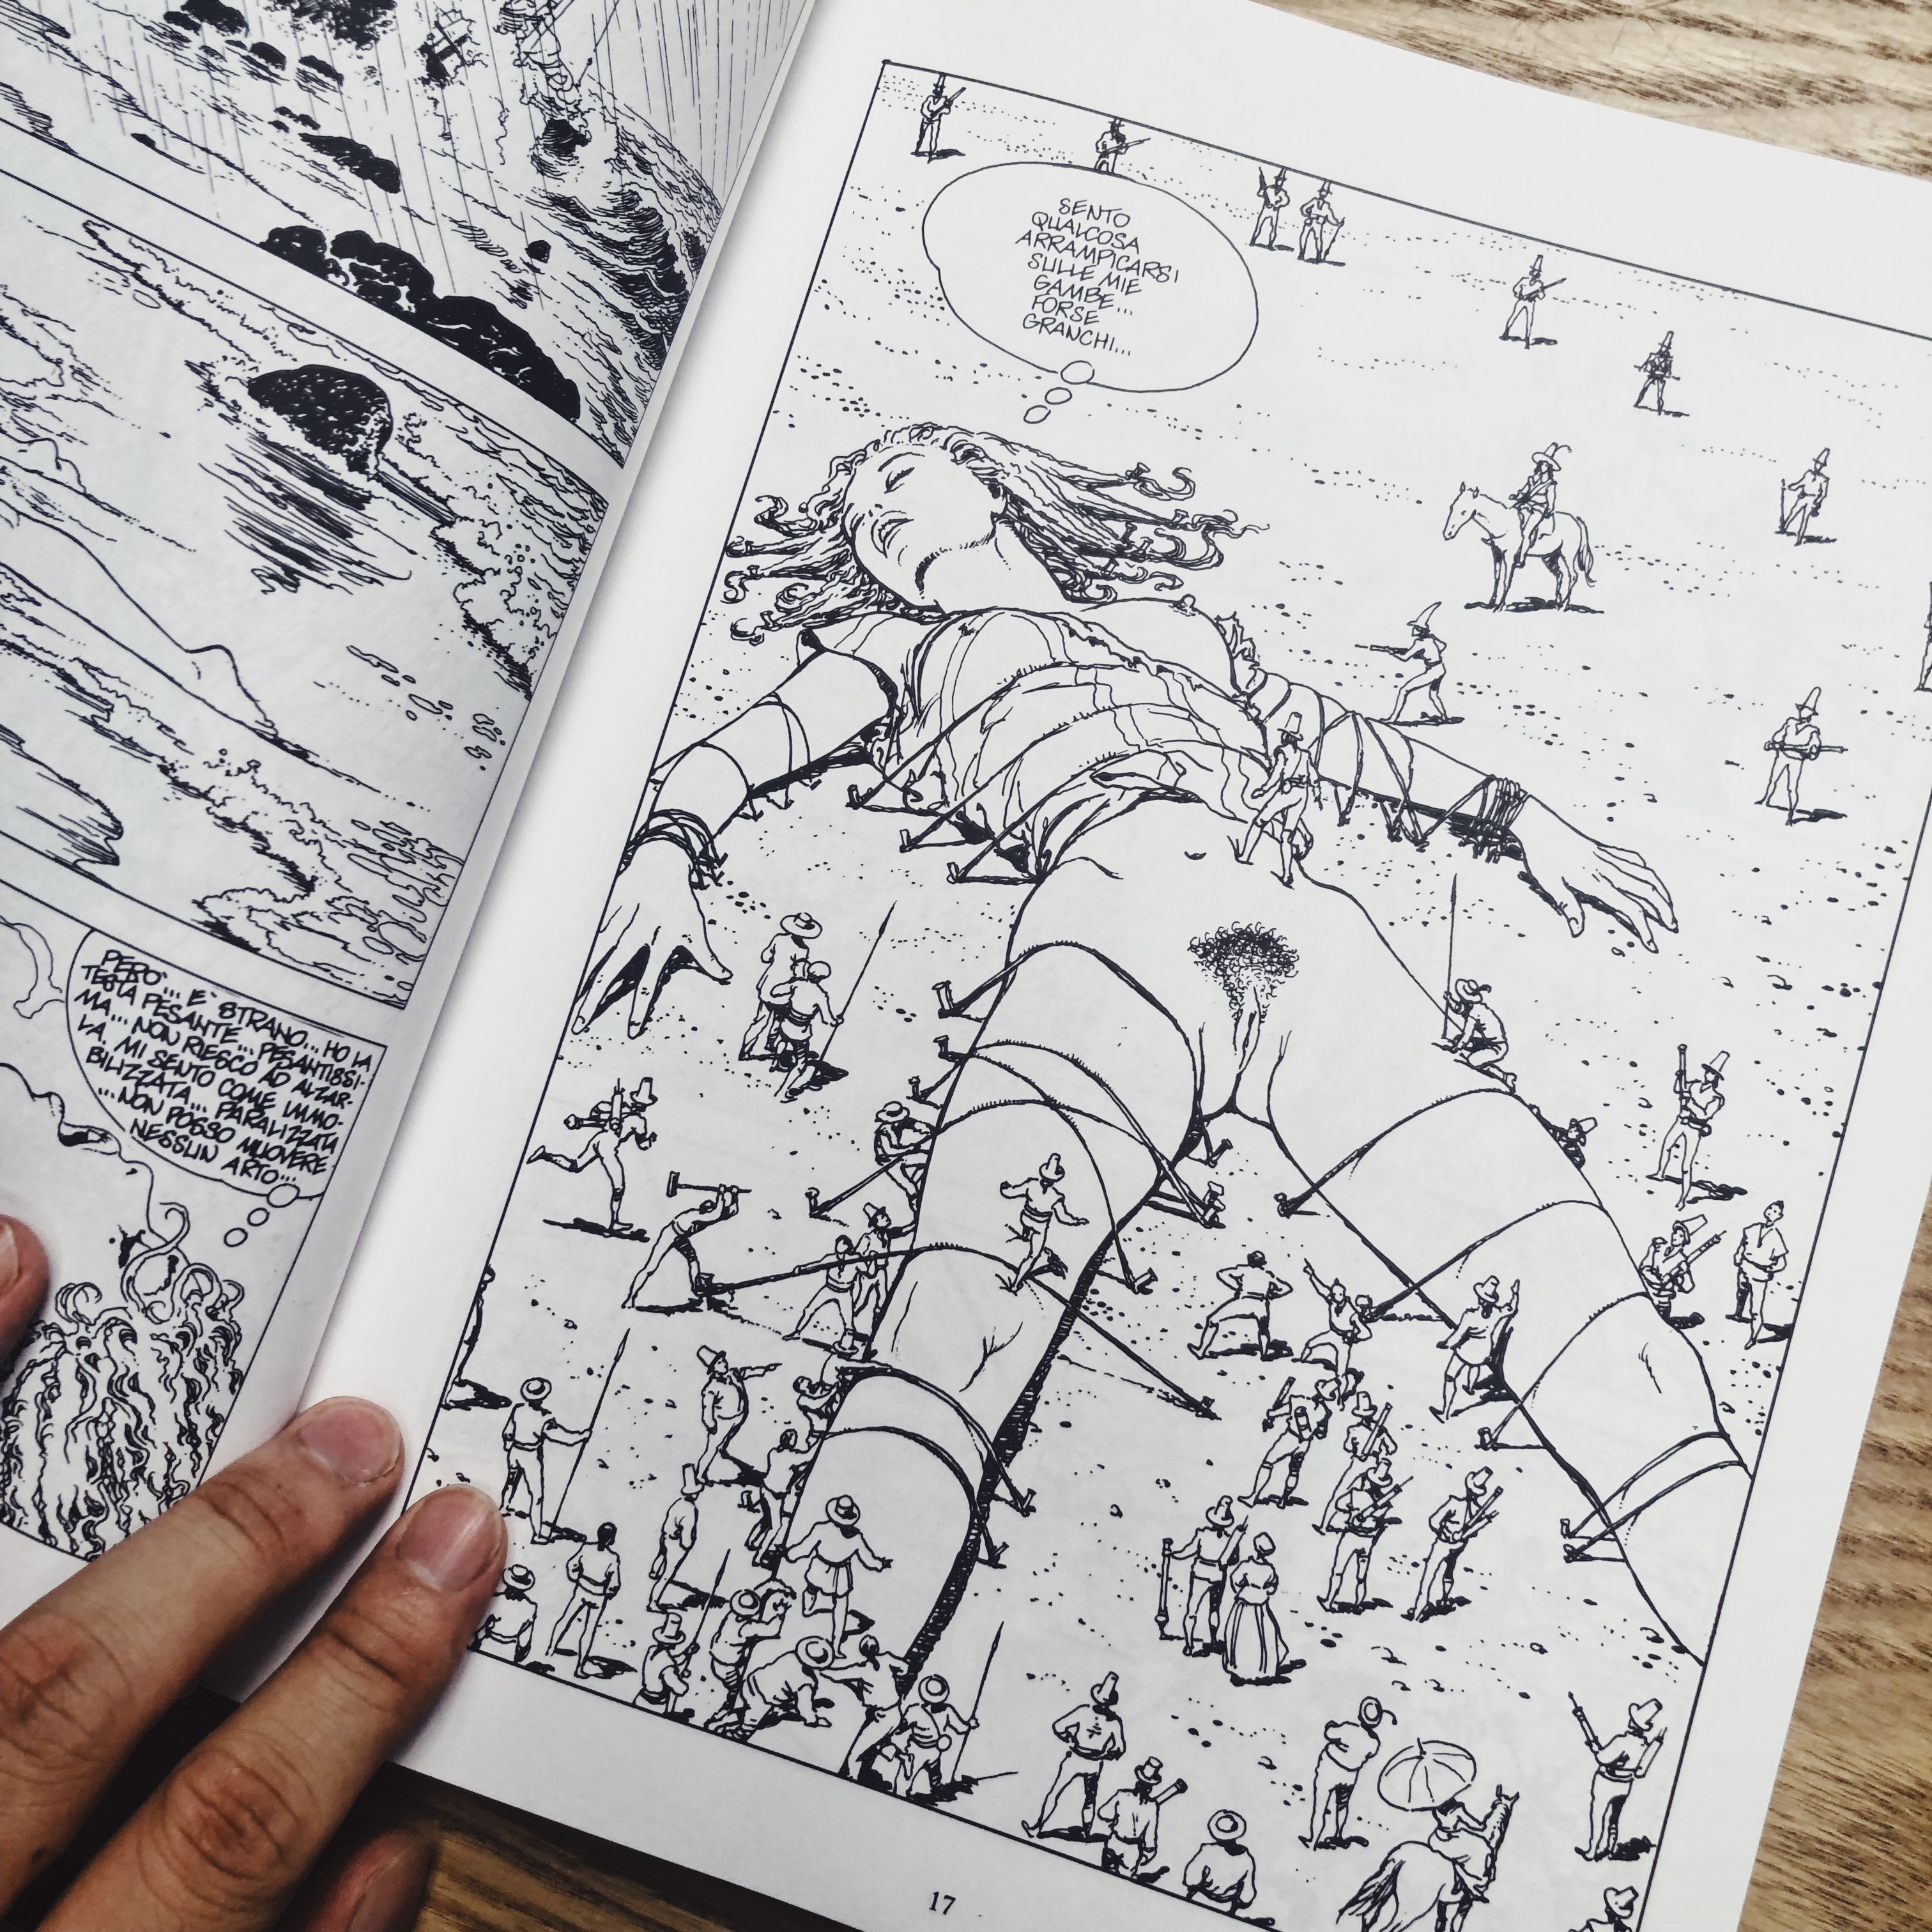 PERÒ... E' STRANO... HO LA
TESTA PESANTE... PESANTISSI-
MA... NON RIESCO AD ALZAR-
LA. MI SENTO COME IMMO-
BILIZZATA... PARALIZZATA
...NON POSSO MUOVERE
NESSUN ARTO...
SENTO
QUALCOSA
ARRAMPICARSI
SULLE MIE
GAMBE...
FORSE
GRANCHI...
17